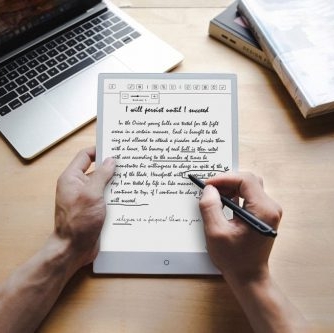 I will persist until I succeed
In the Orient young bulls are tested for the fight
arena in a certain manner. Each is brought to the
ring and allowed to attack a picador who pricks them
with a lance. The bravery of each bull is then rated
with care according to the number of times he
demonstrates his willingness to charge in spite of the
sting of the blade. Henceforth will I recognize that
day I am tested by life in like manner.
I continue to try, if
will succeed.